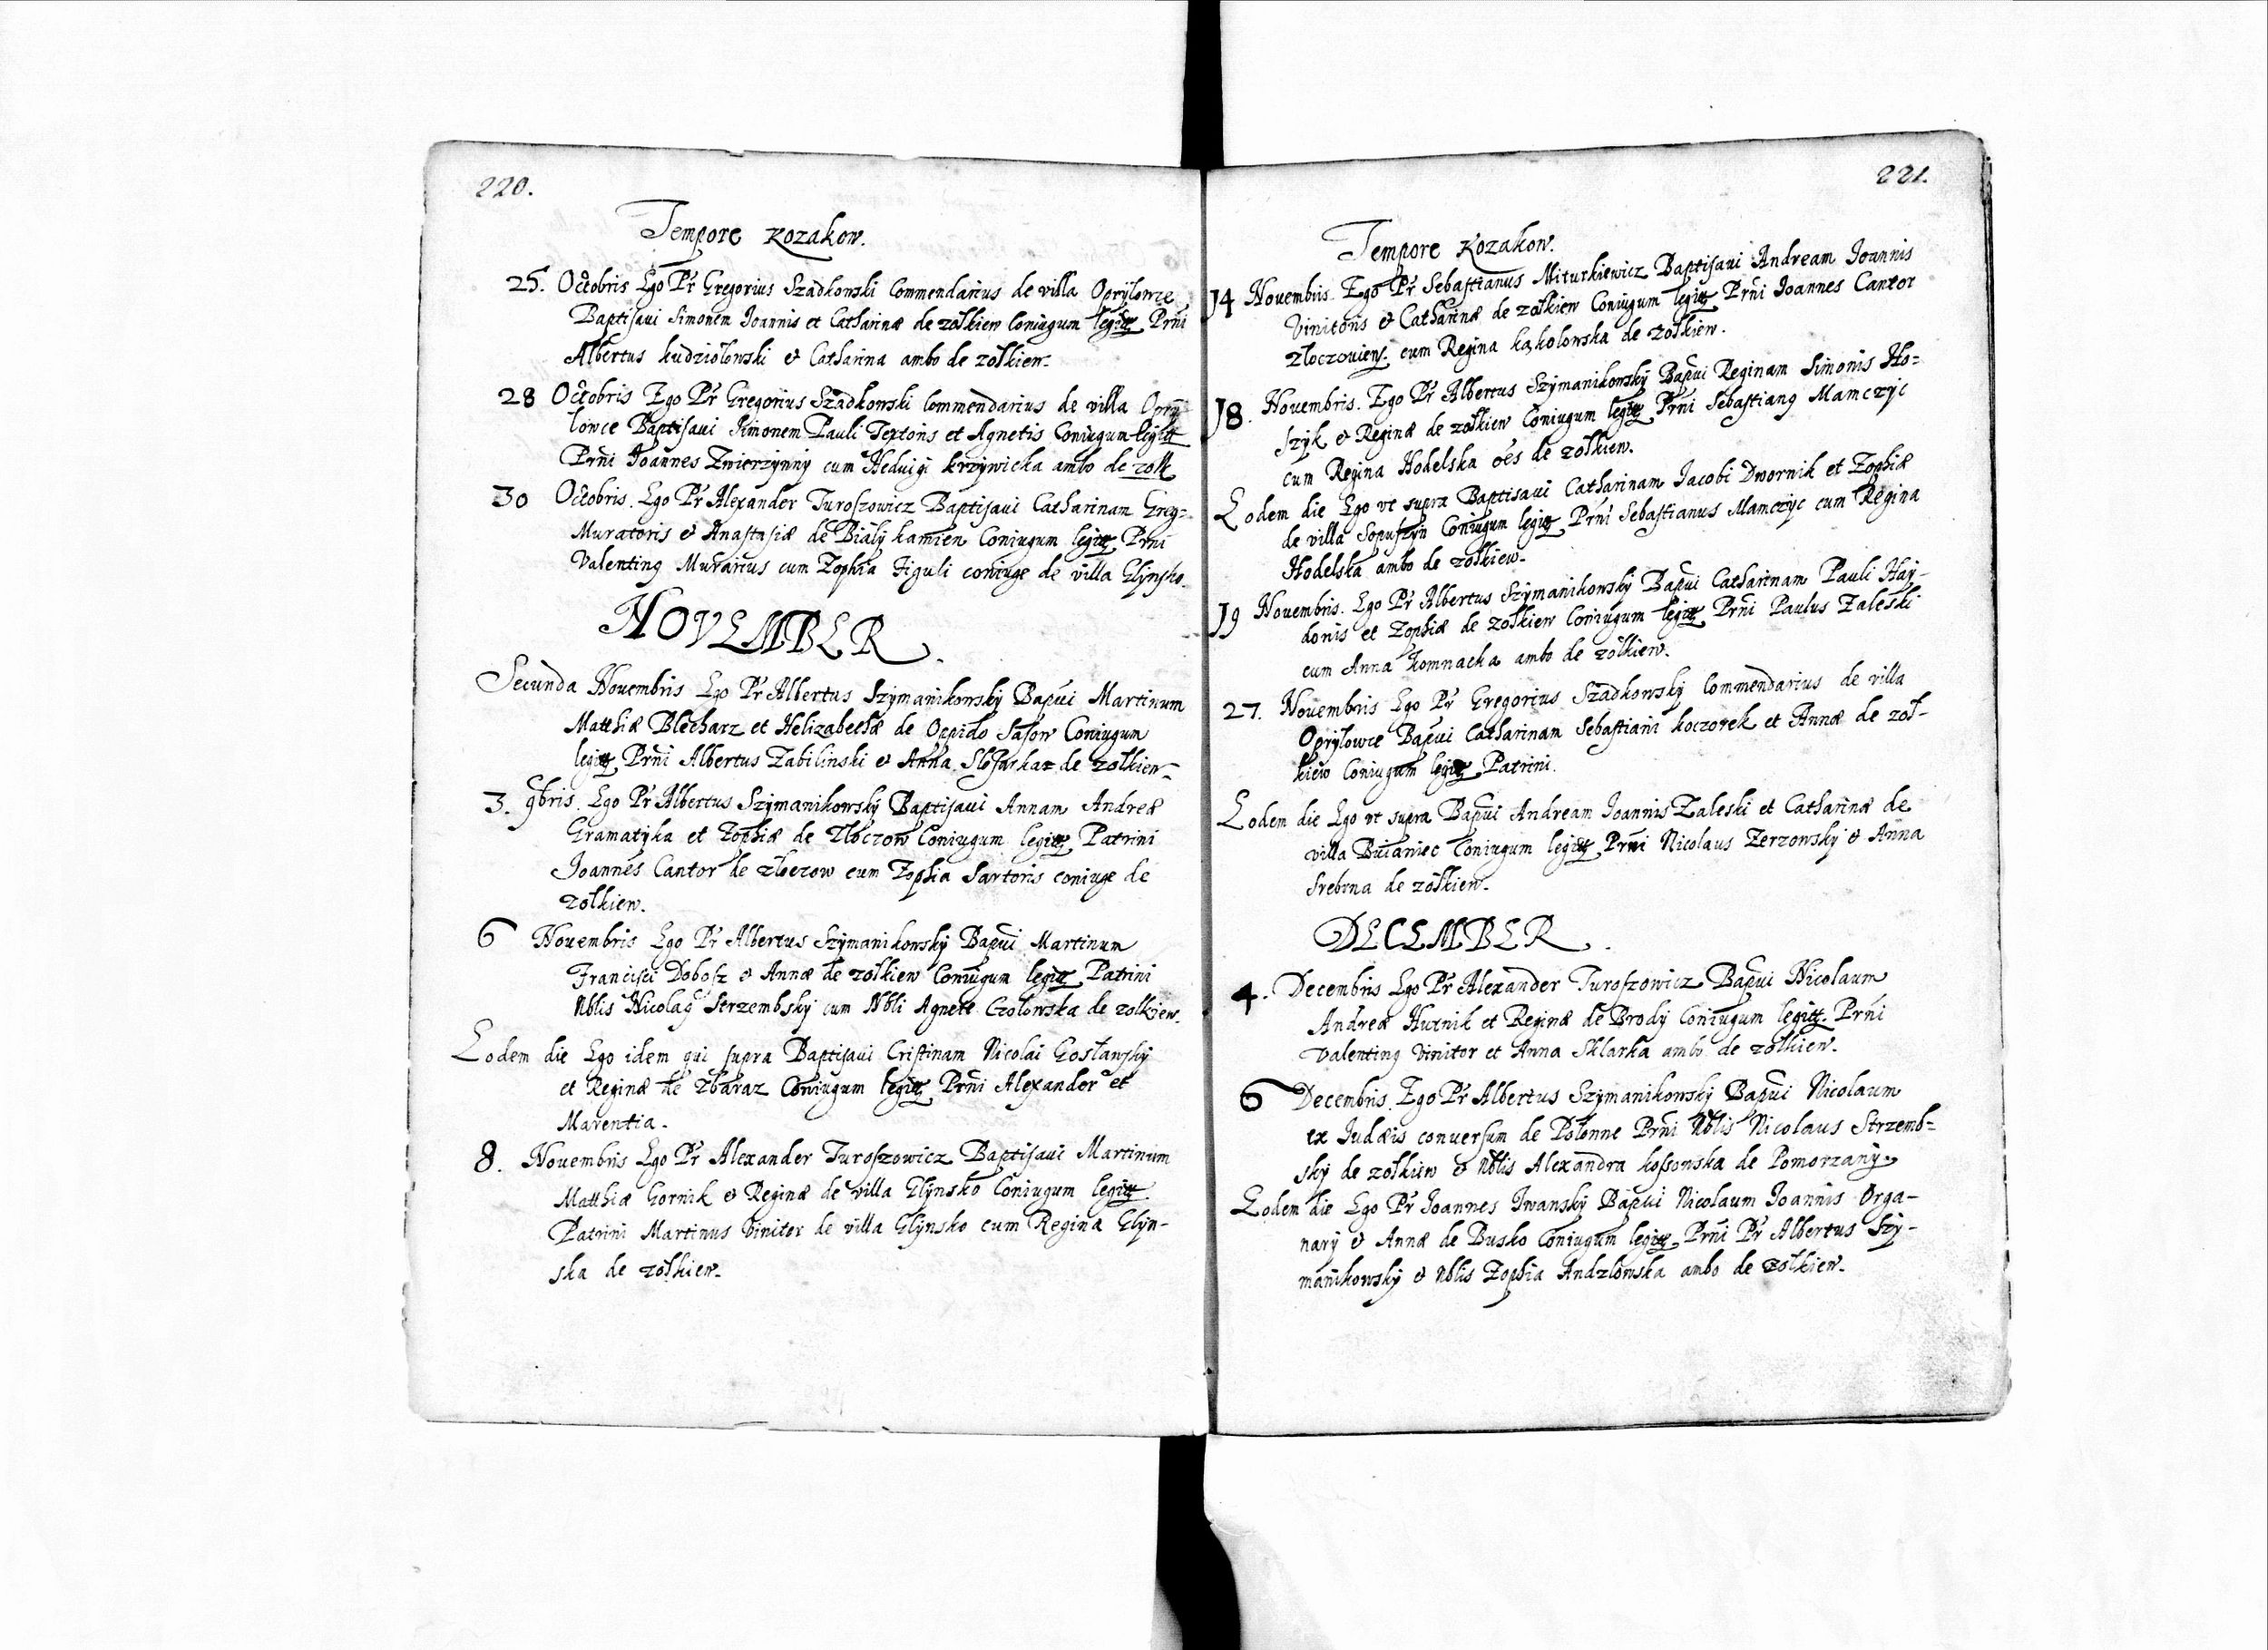 220.
Tempore Kozakow.
25. Octobris Ego Pr Gregorius Szadkowski Commendarius de villa Opryłowce
Baptisaui Simonem Joannis et Catharinæ de zołkiew Coniugum legitt Prni
Albertus kudziołowski & Catharina ambo de zołkiew.
28 Octobris Ego Pr Gregorius Szadkowski Commendarius de villa Opry
łowce Baptisaui Simonem Pauli Textoris et Agnetis Coniugum legitt
Prni Joannes Zwierzynny cum Heduigi krzywicka ambo de zołk
30 Octobris. Ego Pr Alexander Turoszowicz Baptisaui Catharinam Greg=
Muratoris & Anastasiæ de Biały kamien Coniugum legitt Prni
Valentinq Murarius cum Zophia Figuli coniuge de villa Glynsko.
NOVEMBER.
Secunda Nouembris Ego Pr Albertus Szymanikowsky Bapui Martinum
Matthiæ Blecharz et Helizabethæ de Oppido Sasow Coniugum
legitt Prni Albertus Zabilinski & Anna Slosarka de zołkiew.
3. 9bris. Ego Pr Albertus Szymanikowsky Baptisaui Annam Andreæ
Gramatyka et Zophiæ de Złoczow Coniugum legitt Patrini
Joannes Cantor de złoczow cum Zophia Sartoris coniuge de
zołkiew.
6 Nouembris Ego Pr Albertus Szymanikowsky Bapui Martinum
Francisci Dobosz & Annæ de zołkiew Coniugum legitt Patrini
Nblis Nicolaq Strzembsky cum Nbli Agnete Czołowska de zolkiew.
Eodem die Ego idem qui supra Baptisaui Cristinam Nicolai Gosłansky
et Reginæ de Zbaraz Coniugum legitt Prni Alexander et
Marentia.
8. Nouembris Ego Pr Alexander Turoszowicz Baptisaui Martinum
Matthiæ Gornik & Reginæ de villa Glynsko Coniugum legitt.
Patrini Martinus Vinitor de villa Glynsko cum Regina Glyn-
ska de zołkiew.
221.
Tempore Kozakow.
14 Nouembris. Ego Pr Sebastianus Miturkiewicz Baptisaui Andream Joannis
Vinitoris & Catharinæ de zołkiew Coniugum legitt Prni Joannes Cantor
Złoczouiens. cum Regina kąkolowska de zołkiew.
18. Nouembris. Ego Pr Albertus Szymanikowsky Bapui Reginam Simonis Ho=
szyk & Reginæ de zołkiew Coniugum legitt Prni Sebastianq Mamczyc
cum Regina Hodelska oēs de zołkiew.
Eodem die Ego vt supra Baptisaui Catharinam Jacobi Dwornik et Zophiæ
de villa Sopuszyn Coniugum legitt Prni Sebastianus Mamczyc cum Regina
Hodelska ambo de zołkiew.
19 Nouembris. Ego Pr Albertus Szymanikowsky Bapui Catharinam Pauli Hay-
donis et Zophiæ de zołkiew Coniugum legitt Prni Paulus Zaleski
cum Anna komnacka ambo de zołkiew.
27. Nouembris Ego Pr Gregorius Szadkowsky Commendarius de villa
Opryłowce Bapui Catharinam Sebastiani koczorek et Annæ de zoł-
kiew Coniugum legitt Patrini.
Eodem die Ego vt supra Bapui Andream Joannis Zaleski et Catharinæ de
villa Buianiec Coniugum legitt Prni Nicolaus Zerzowsky & Anna
Srebrna de zołkiew.
DECEMBER.
4. Decembris Ego Pr Alexander Turoszowicz Bapui Nicolaum
Andreæ Hutnik et Reginæ de Brody Coniugum legitt. Prni
Valentinq Vinitor et Anna Sklarka ambo de zołkiew.
6 Decembris. Ego Pr Albertus Szymanikowsky Bapui Nicolaum
ex Judæis conuersum de Połonne Prni Nblis Nicolaus Strzemb=
sky de zołkiew & Nblis Alexandra kossowska de Pomorzany.
Eodem die Ego Pr Joannes Iwansky Bapui Nicolaum Joannis Orga-
nary & Annæ de Busko Coniugum legitt Prni Pr Albertus Szy-
manikowsky & Nblis Zophia Andzlowska ambo de zołkiew.